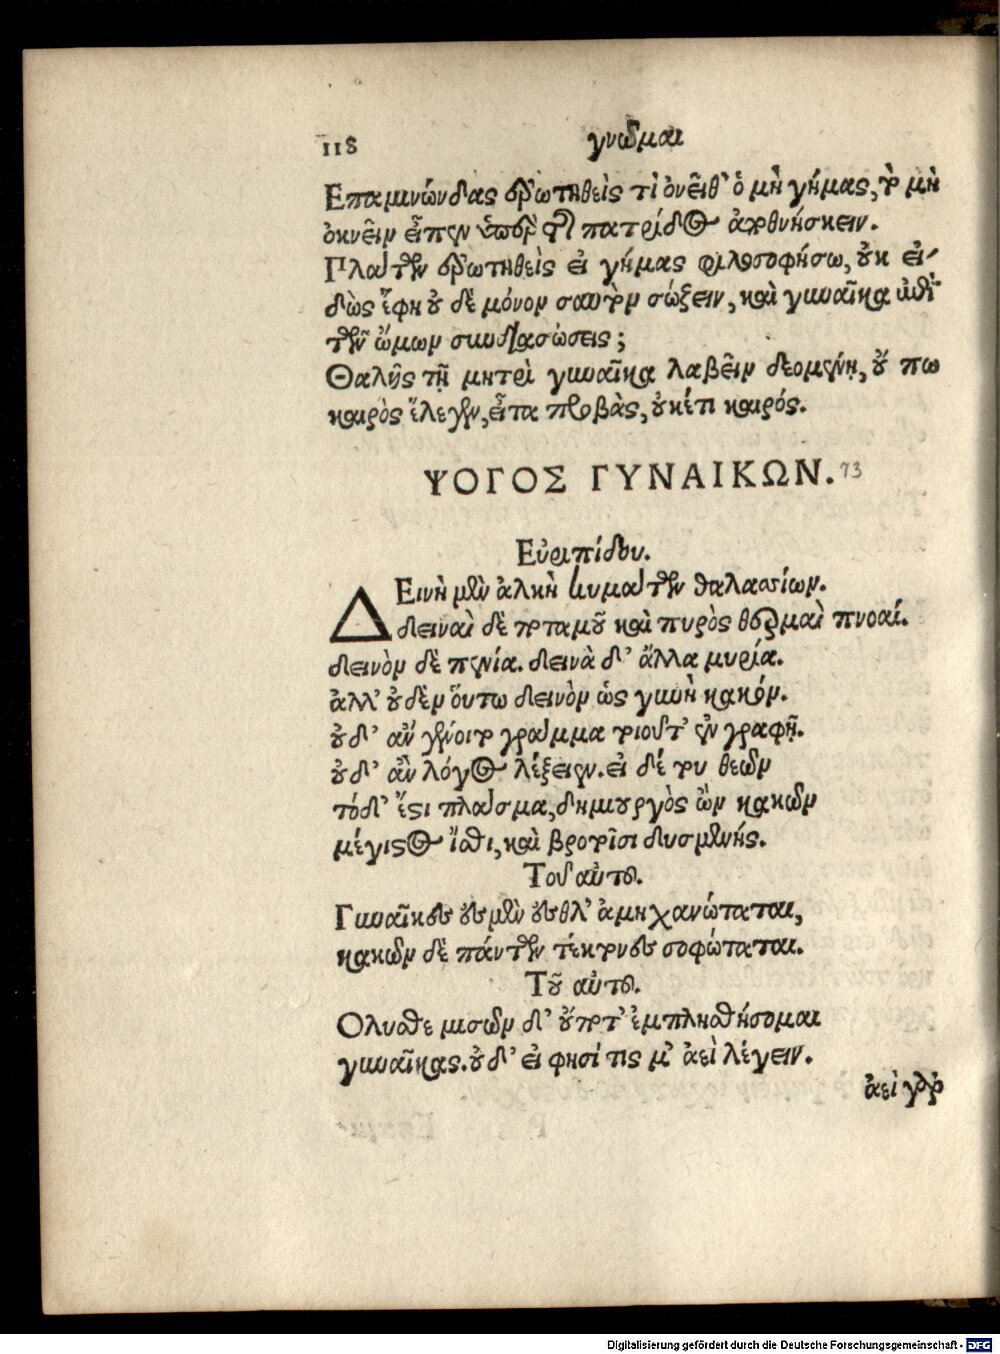 118
γνῶμαι
Επαμινώνδας ἐρωτηθεὶς τί ὀνεῖθ' ὁ μὴ γήμας, τὸ μὴ
ὀκνεῖν εἶπεν ὑπὲρ τῆς πατρίδος ἀποθνήσκειν.
Πλάτων ἐρωτηθεὶς εἰ γήμας φιλοσοφήσω, οὐκ εἰ-
δὼς ἔφη οὐδὲ μόνον σαυτὸν σώζειν, καὶ γυναῖκα ἐπὶ
τῶν ὤμων σκυδασώσεις;
Θαλῆς τῇ μητρὶ γυναῖκα λαβεῖν δεομένῃ, οὔ πω
καιρὸς ἔλεγεν, εἶτα προβὰς, οὐκέτι καιρός.
ΨΟΓΟΣ ΓΥΝΑΙΚΩΝ. 73
Εὐριπίδου.
ΔΕινὴ μὲν ἀλκὴ κυμάτων θαλασσίων.
δειναὶ δὲ ποταμοῦ καὶ πυρὸς θερμαὶ πνοαί.
δεινὸν δὲ πενία. δεινὰ δ' ἄλλα μυρία.
ἀλλ' οὐδὲν οὕτω δεινὸν ὡς γυνὴ κακόν.
οὐδ' ἂν γένοιτο γράμμα τοιοῦτ' ἐν γραφῇ.
οὐδ' ἂν λόγος λέξειεν. εἰ δέ του θεῶν
τόδ' ἔστι πλάσμα, δημιουργὸς ὢν κακῶν
μέγιστος ἴσθι, καὶ βροτοῖσι δυσμενής.
Τοῦ αὐτοῦ.
Γυναῖκες ἐς μὲν ἐσθλ' ἀμηχανώταται,
κακῶν δὲ πάντων τέκτονες σοφώταται.
Τοῦ αὐτοῦ.
Ολυσθε μισῶν δ' οὔποτ' ἐμπλησθήσομαι
γυναῖκας. οὐδ' εἰ φησί τις μ' ἀεὶ λέγειν.
ἀεὶ γὰρ
Digitalisierung gefördert durch die Deutsche Forschungsgemeinschaft - DFG